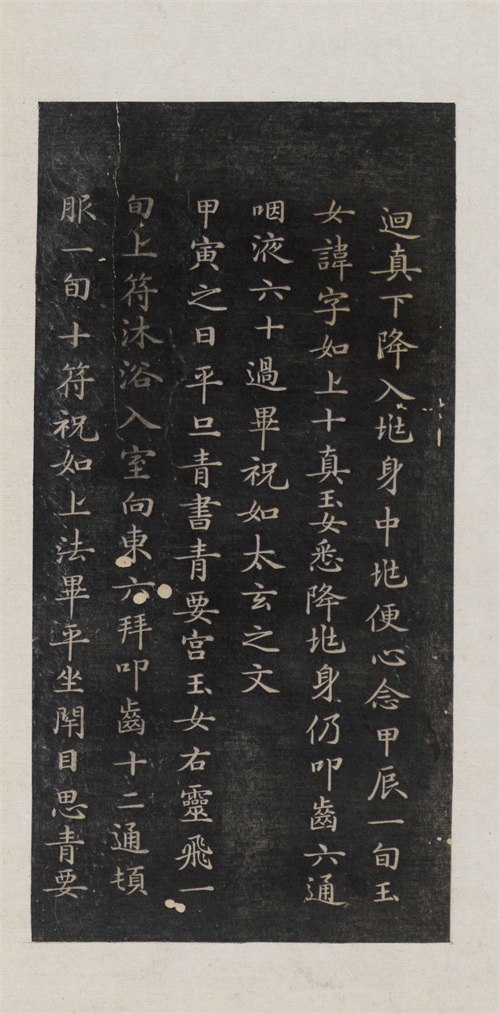 迴真下降入兆身中兆便心念甲辰一旬玉
女諱字如上十真玉女悉降兆身仍叩齒六通
咽液六十過畢祝如太玄之文
甲寅之日平旦青書青要宮玉女右靈飛一
旬上符沐浴入室向東六拜叩齒十二通頓
服一旬十符祝如上法畢平坐閉目思青要